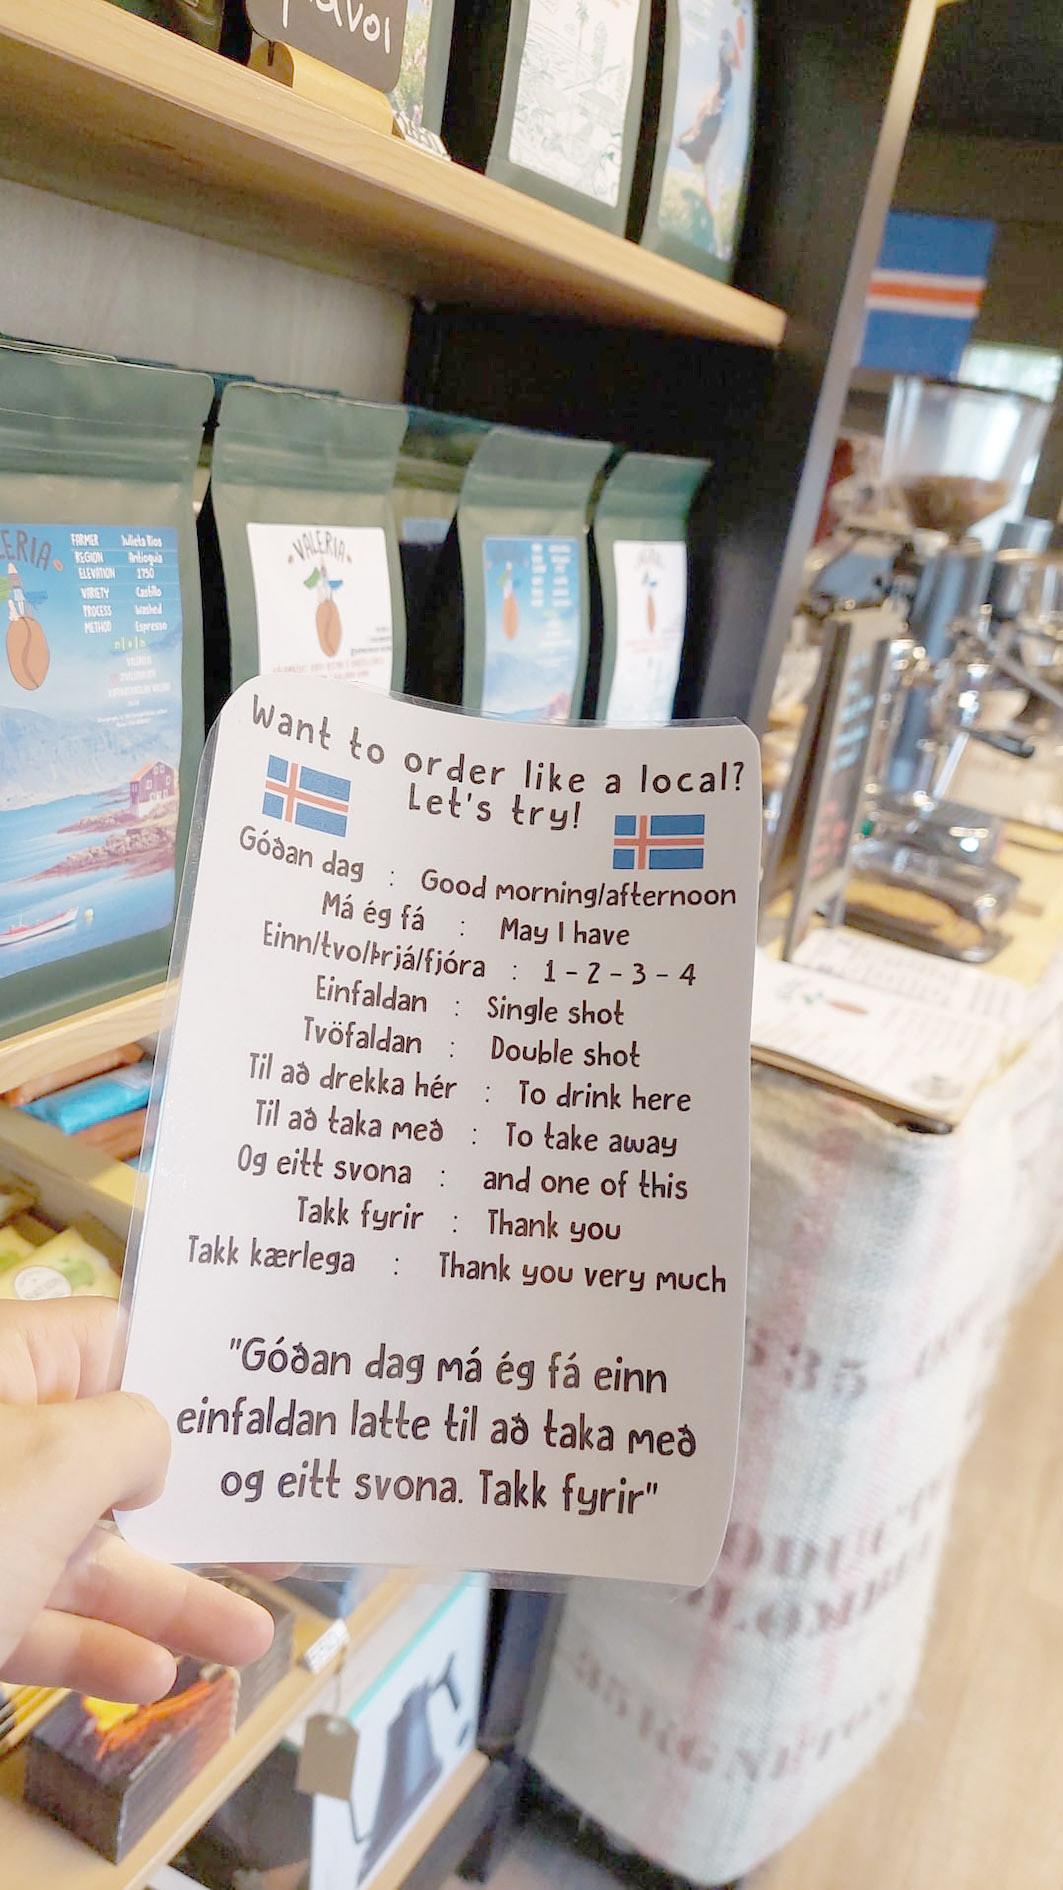 VALERIA
FARMER Julieta Rios
REGION Antioquia
ELEVATION 1750
VARIETY Castillo
PROCESS Washed
METHOD Espresso
VALERIA
Want to order like a local?
Let's try!
Góðan dag : Good morning/afternoon
Má ég fá : May I have
Einn/tvo/Þrjá/fjóra : 1 - 2 - 3 - 4
Einfaldan : Single shot
Tvöfaldan : Double shot
Til að drekka hér : To drink here
Til að taka með : To take away
Og eitt svona : and one of this
Takk fyrir : Thank you
Takk kærlega : Thank you very much
"Góðan dag má ég fá einn
einfaldan latte til að taka með
og eitt svona. Takk fyrir"